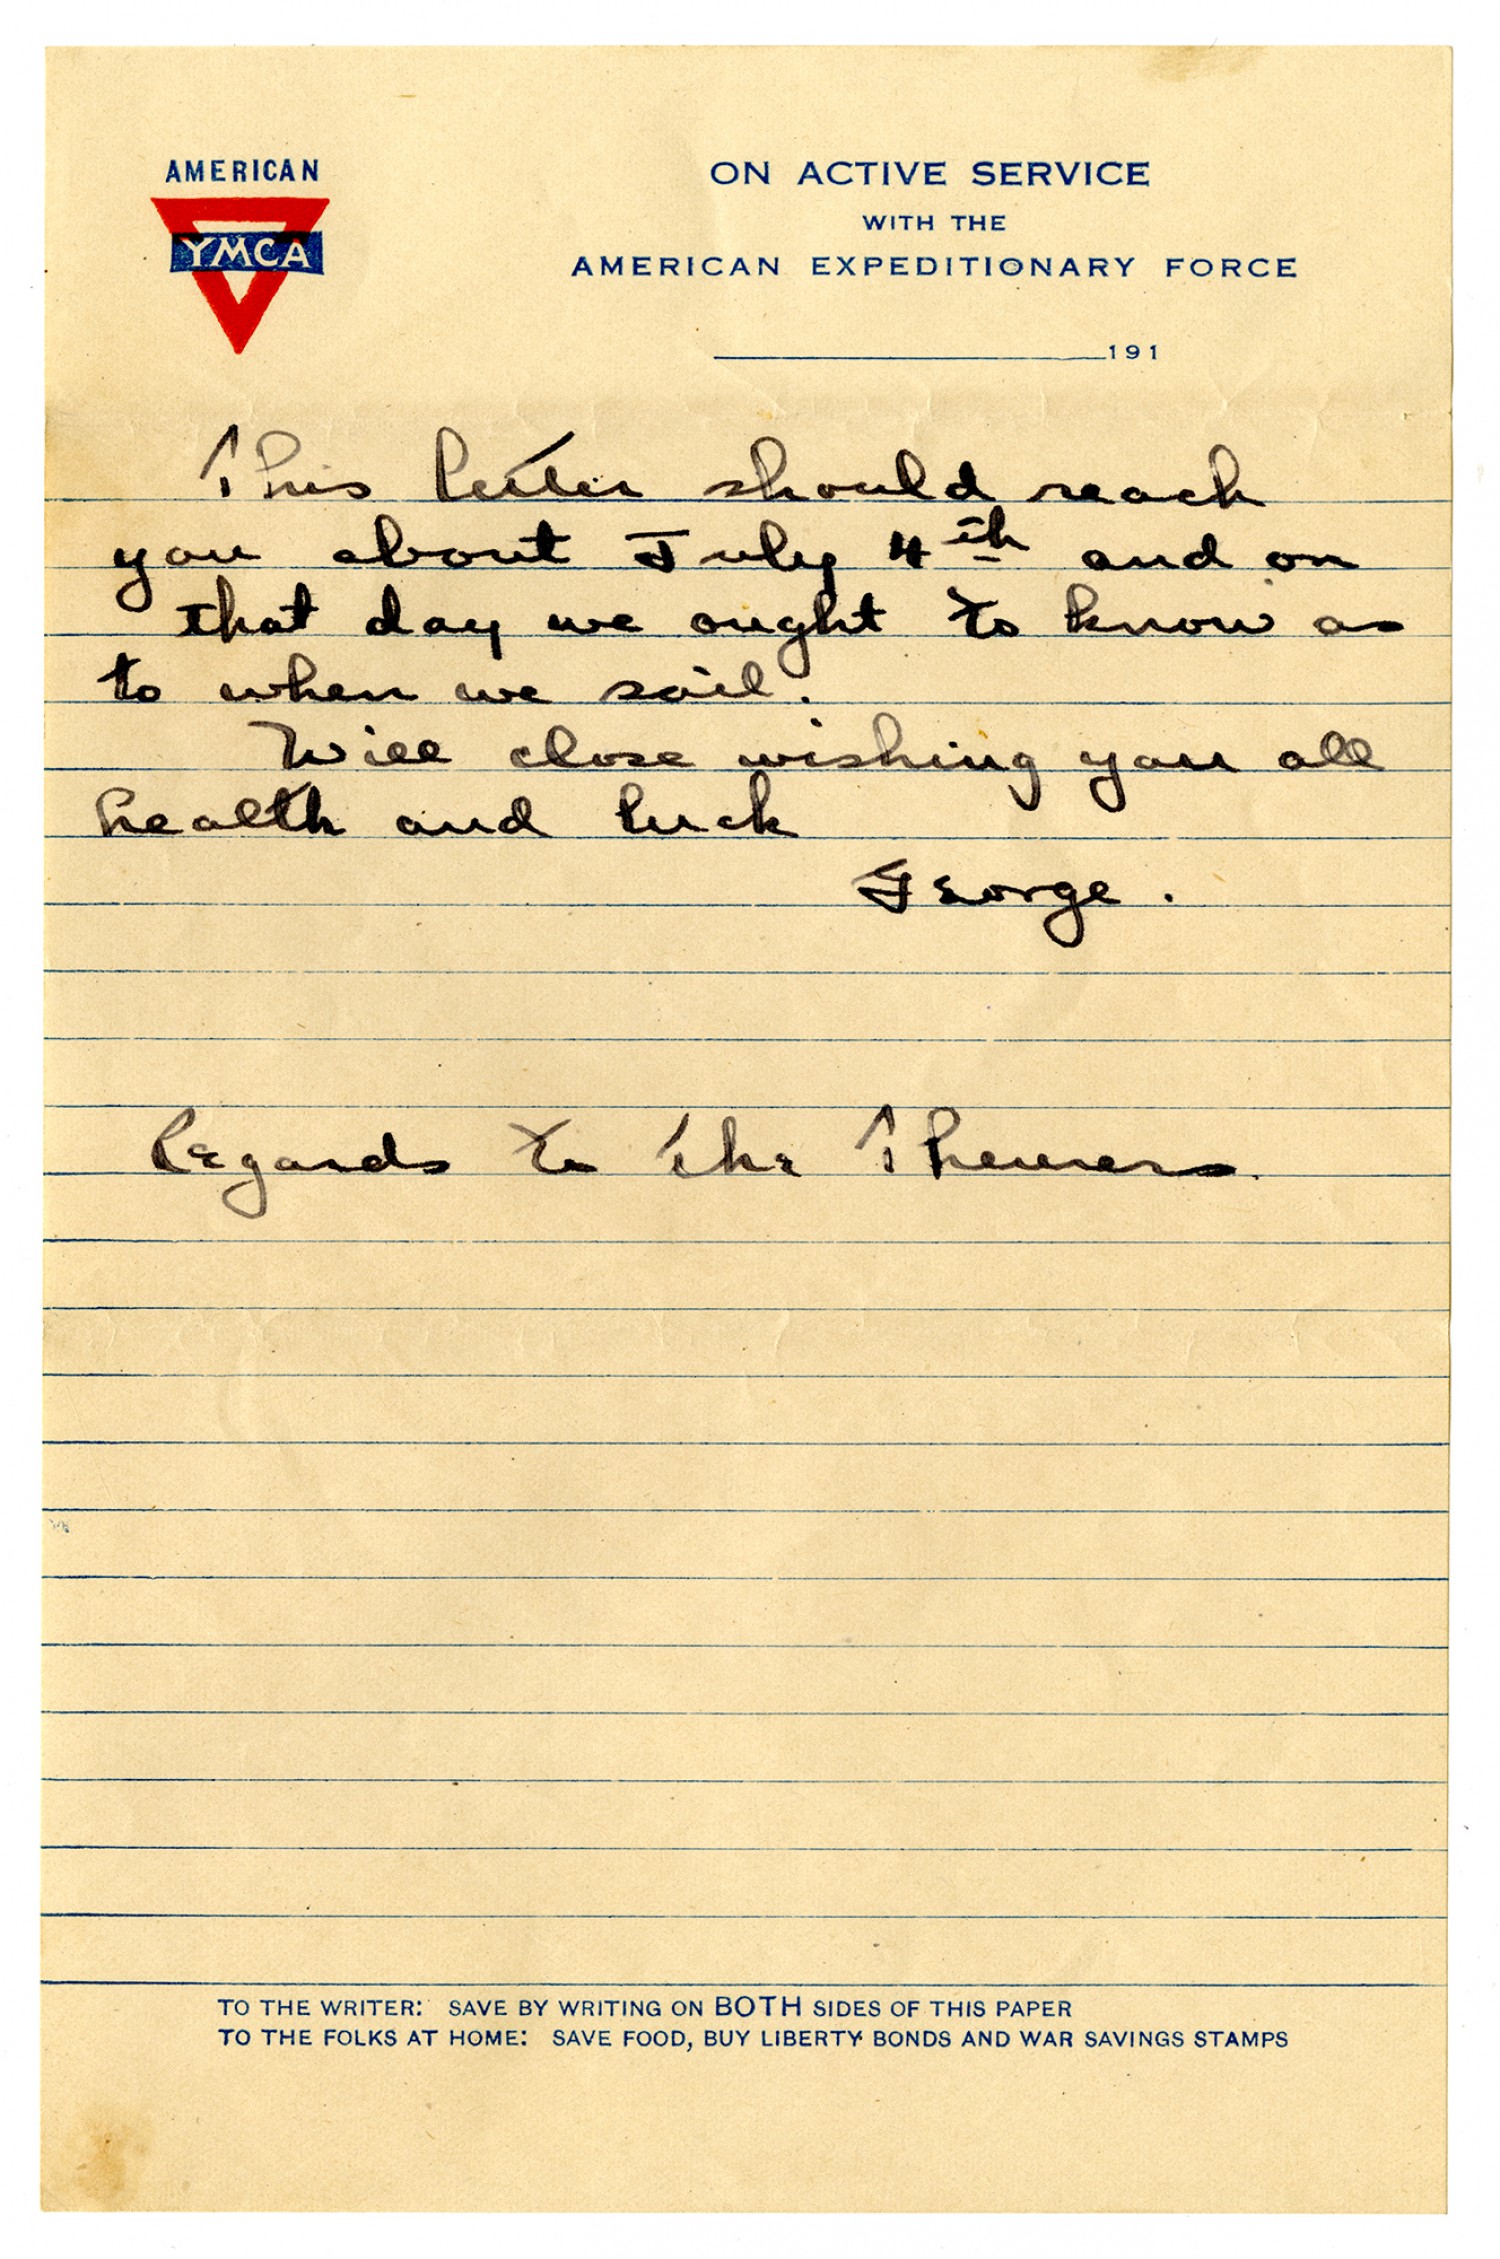 AMERICAN
YMCA
ON ACTIVE SERVICE
WITH THE
AMERICAN EXPEDITIONARY FORCE
191
This letter should reach
you about July 4th and on
that day we ought to know as
to when we sail.
Will close wishing you all
health and luck
George.
Regards to the
TO THE WRITER: SAVE BY WRITING ON BOTH SIDES OF THIS PAPER
TO THE FOLKS AT HOME: SAVE FOOD, BUY LIBERTY BONDS AND WAR SAVINGS STAMPS